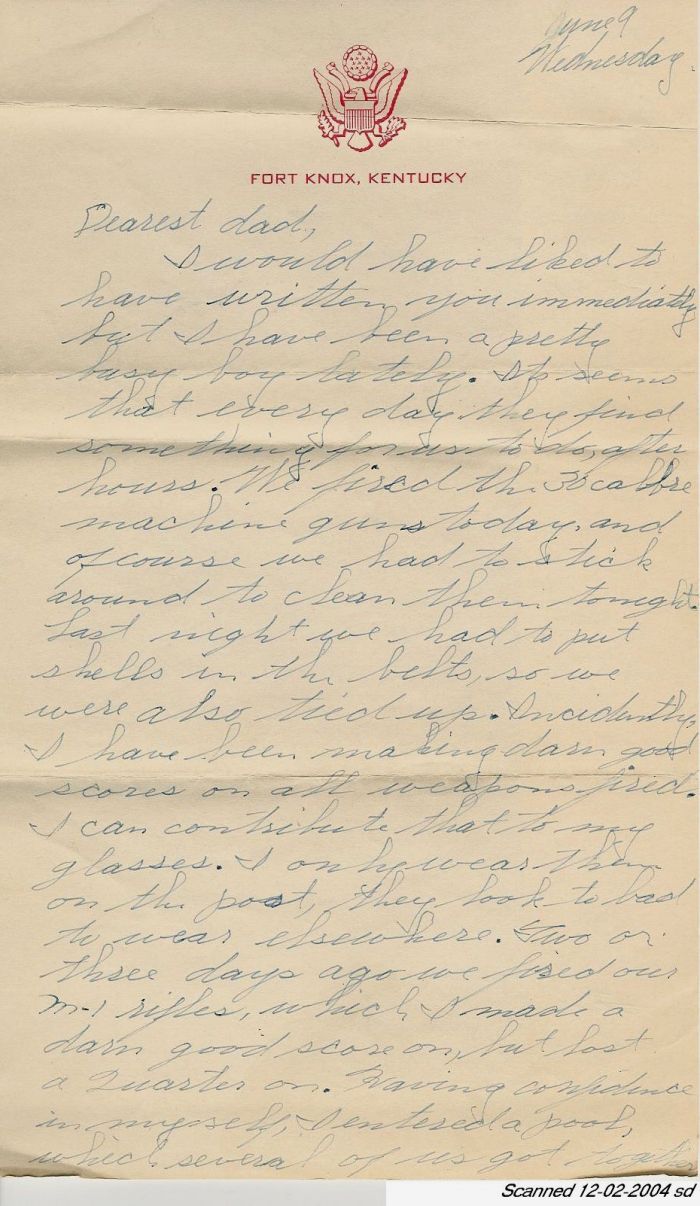 June 9
Wednesday.
FORT KNOX, KENTUCKY
Dearest dad,
I would have liked to
have written you immediately
but I have been a pretty
busy boy lately. It seems
that every day they find
something for us to do, after
hours. We fired the 30 calibre
machine guns today, and
of course we had to stick
around to clean them tonight.
Last night we had to put
shells in the belts, so we
were also tied up. Incidently,
I have been making darn good
scores on all weapons fired.
I can contribute that to my
glasses. I only wear them
on the post, they look to bad
to wear elsewhere. Two or
three days ago we fired our
M-1 rifles, which I made a
darn good score on, but lost
a Quarter on. Having confidence
in myself, I entered a pool,
which several of us got together
Scanned 12-02-2004 sd